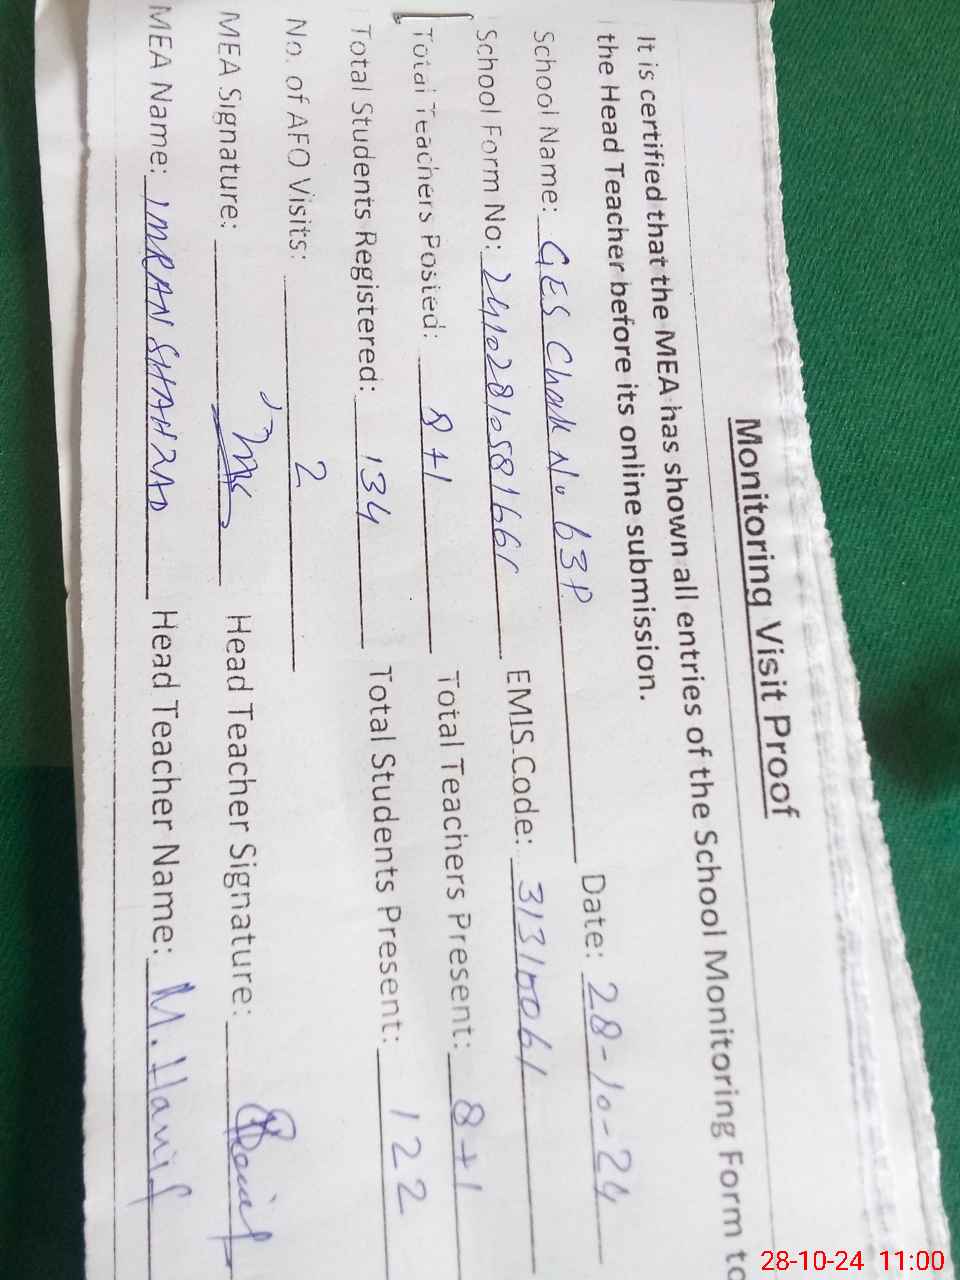 Monitoring Visit Proof
It is certified that the MEA has shown all entries of the School Monitoring Form to
the Head Teacher before its online submission.
School Name: GES Chak No 63P Date: 28-10-24
School Form No: EMIS Code: 31310061
Total Teachers Posted: 8+1 Total Teachers Present: 8+1
Total Students Registered: 134 Total Students Present: 122
No. of AFO Visits: 2
MEA Signature: Head Teacher Signature:
MEA Name: IMRAN SHAHZAD Head Teacher Name: M. Hanif
28-10-24 11:00